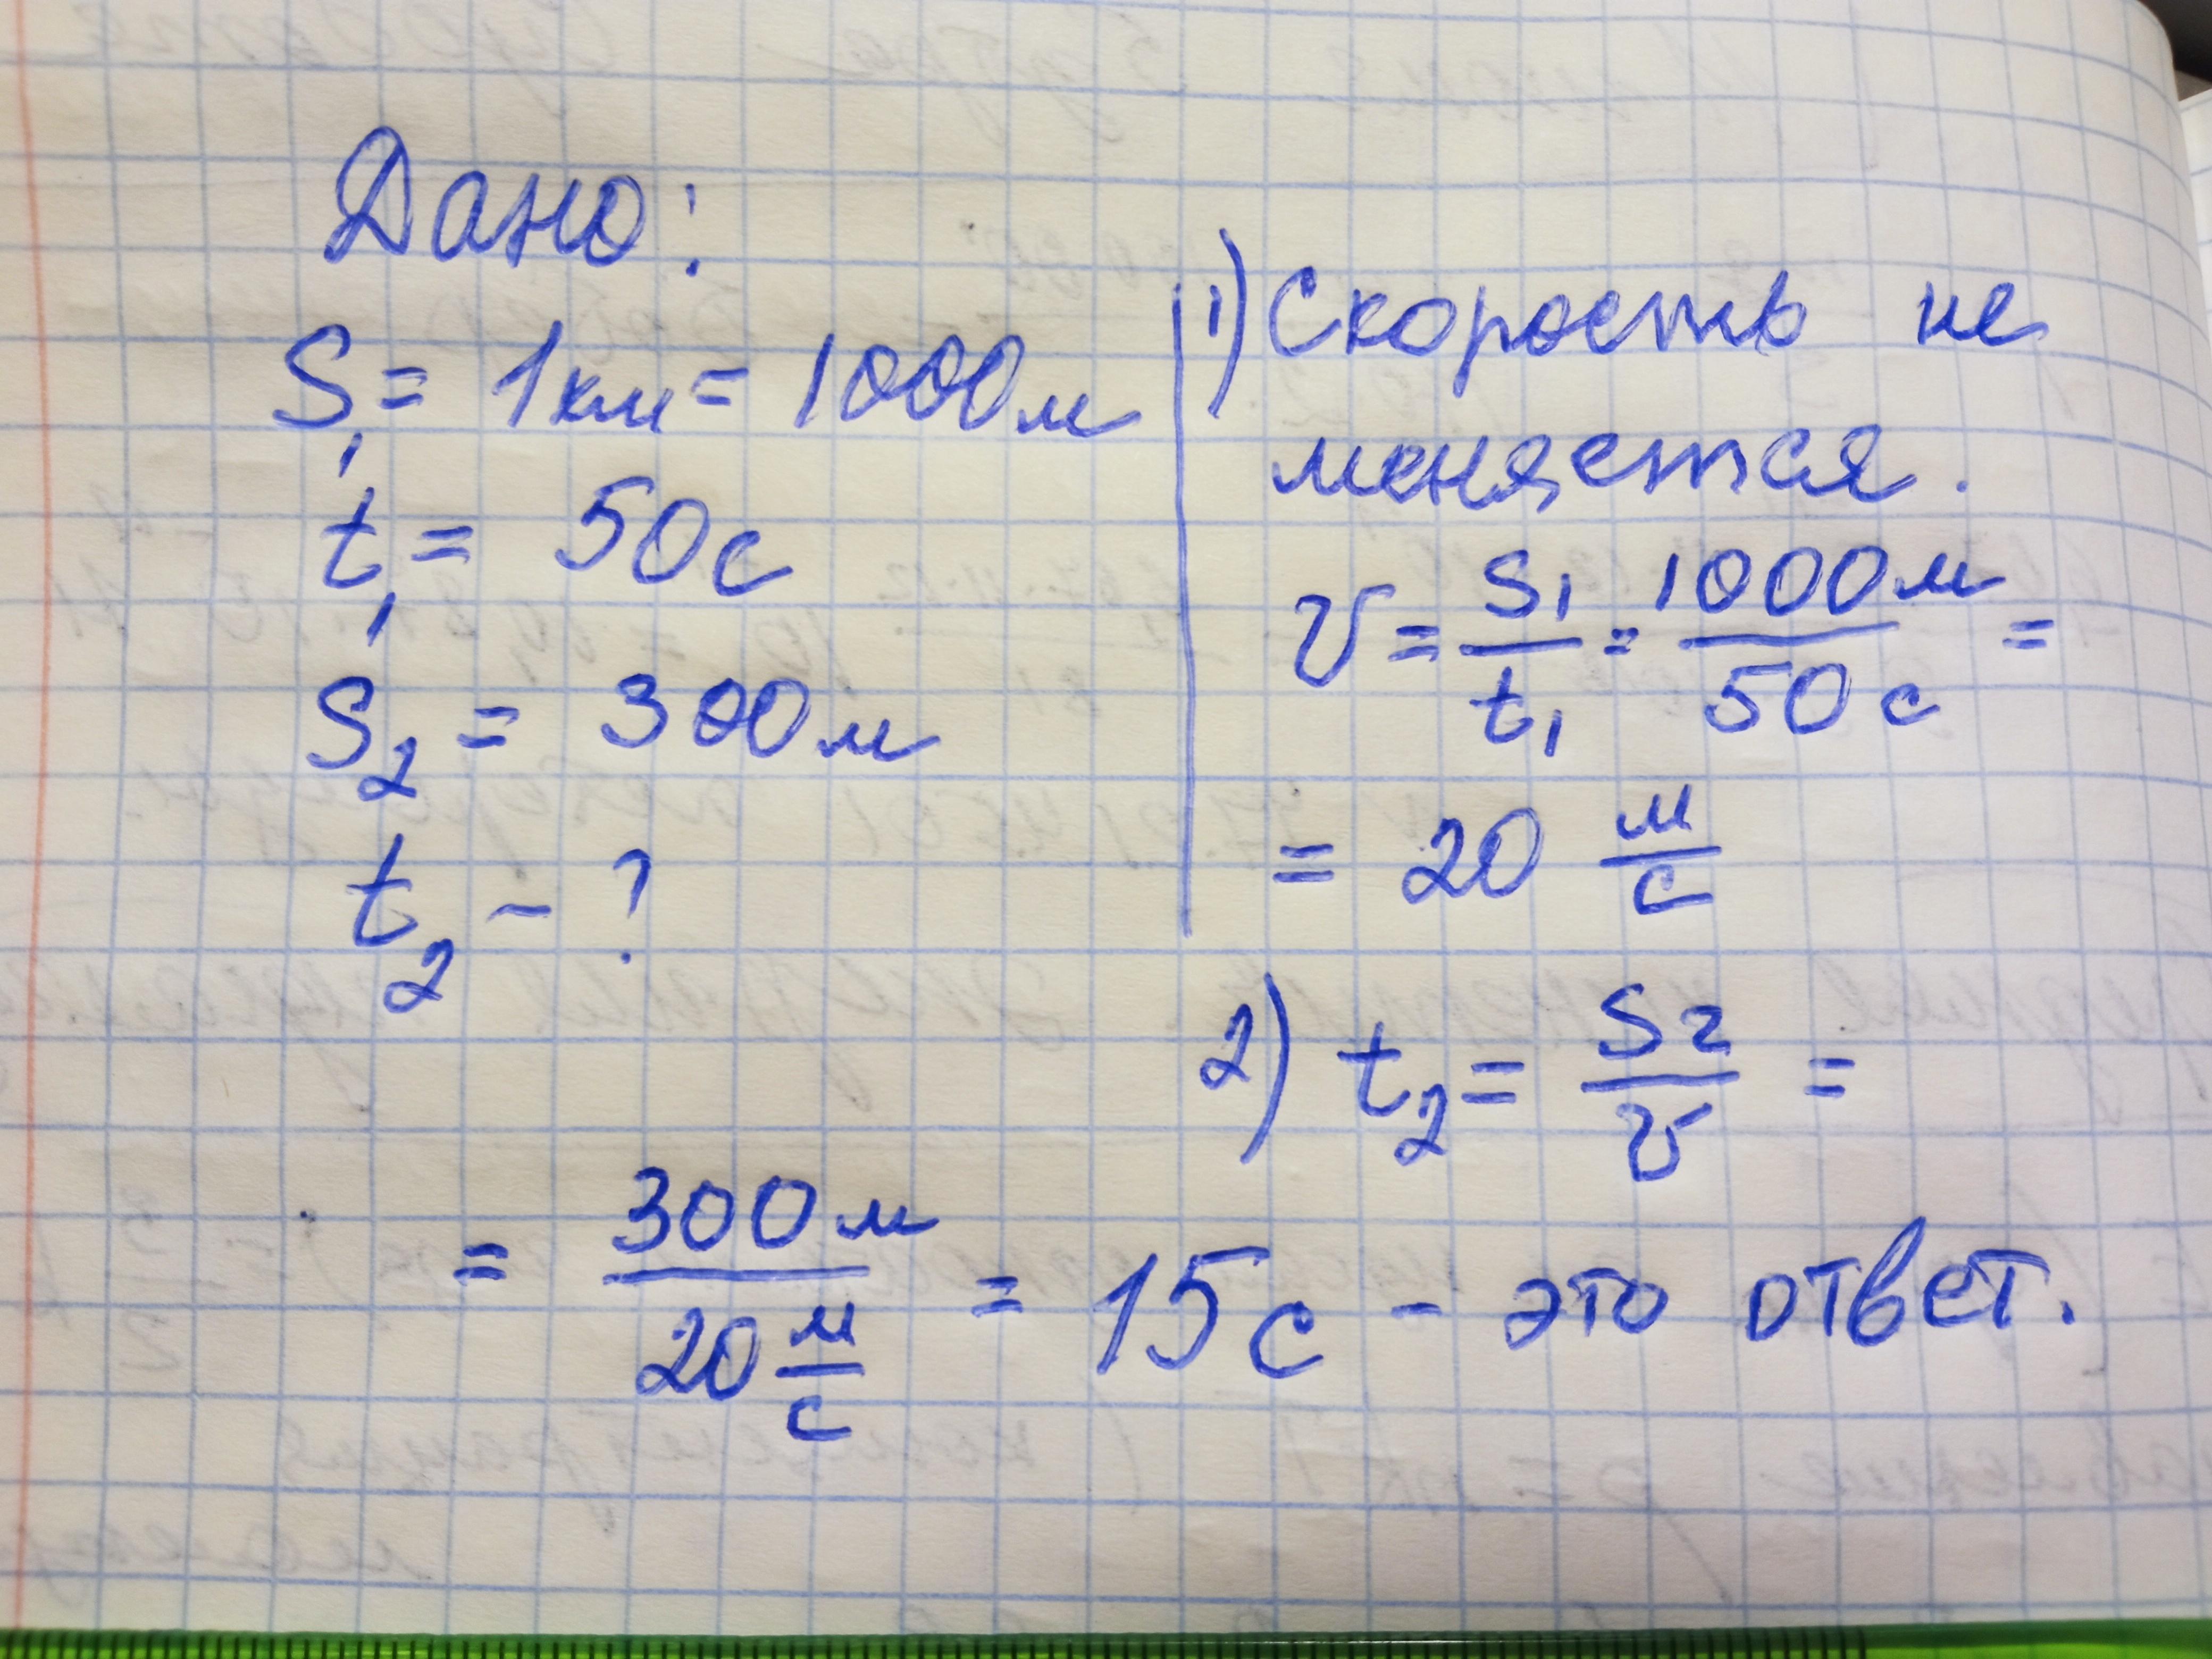 Дано:
S₁ = 1км = 1000м
t₁ = 50с
S₂ = 300м
t₂ - ?
1) Скорость не
меняется.
v = S₁/t₁ = 1000м/50с =
= 20 м/с
2) t₂ = S₂/v =
= 300м/20 м/с = 15с - это ответ.